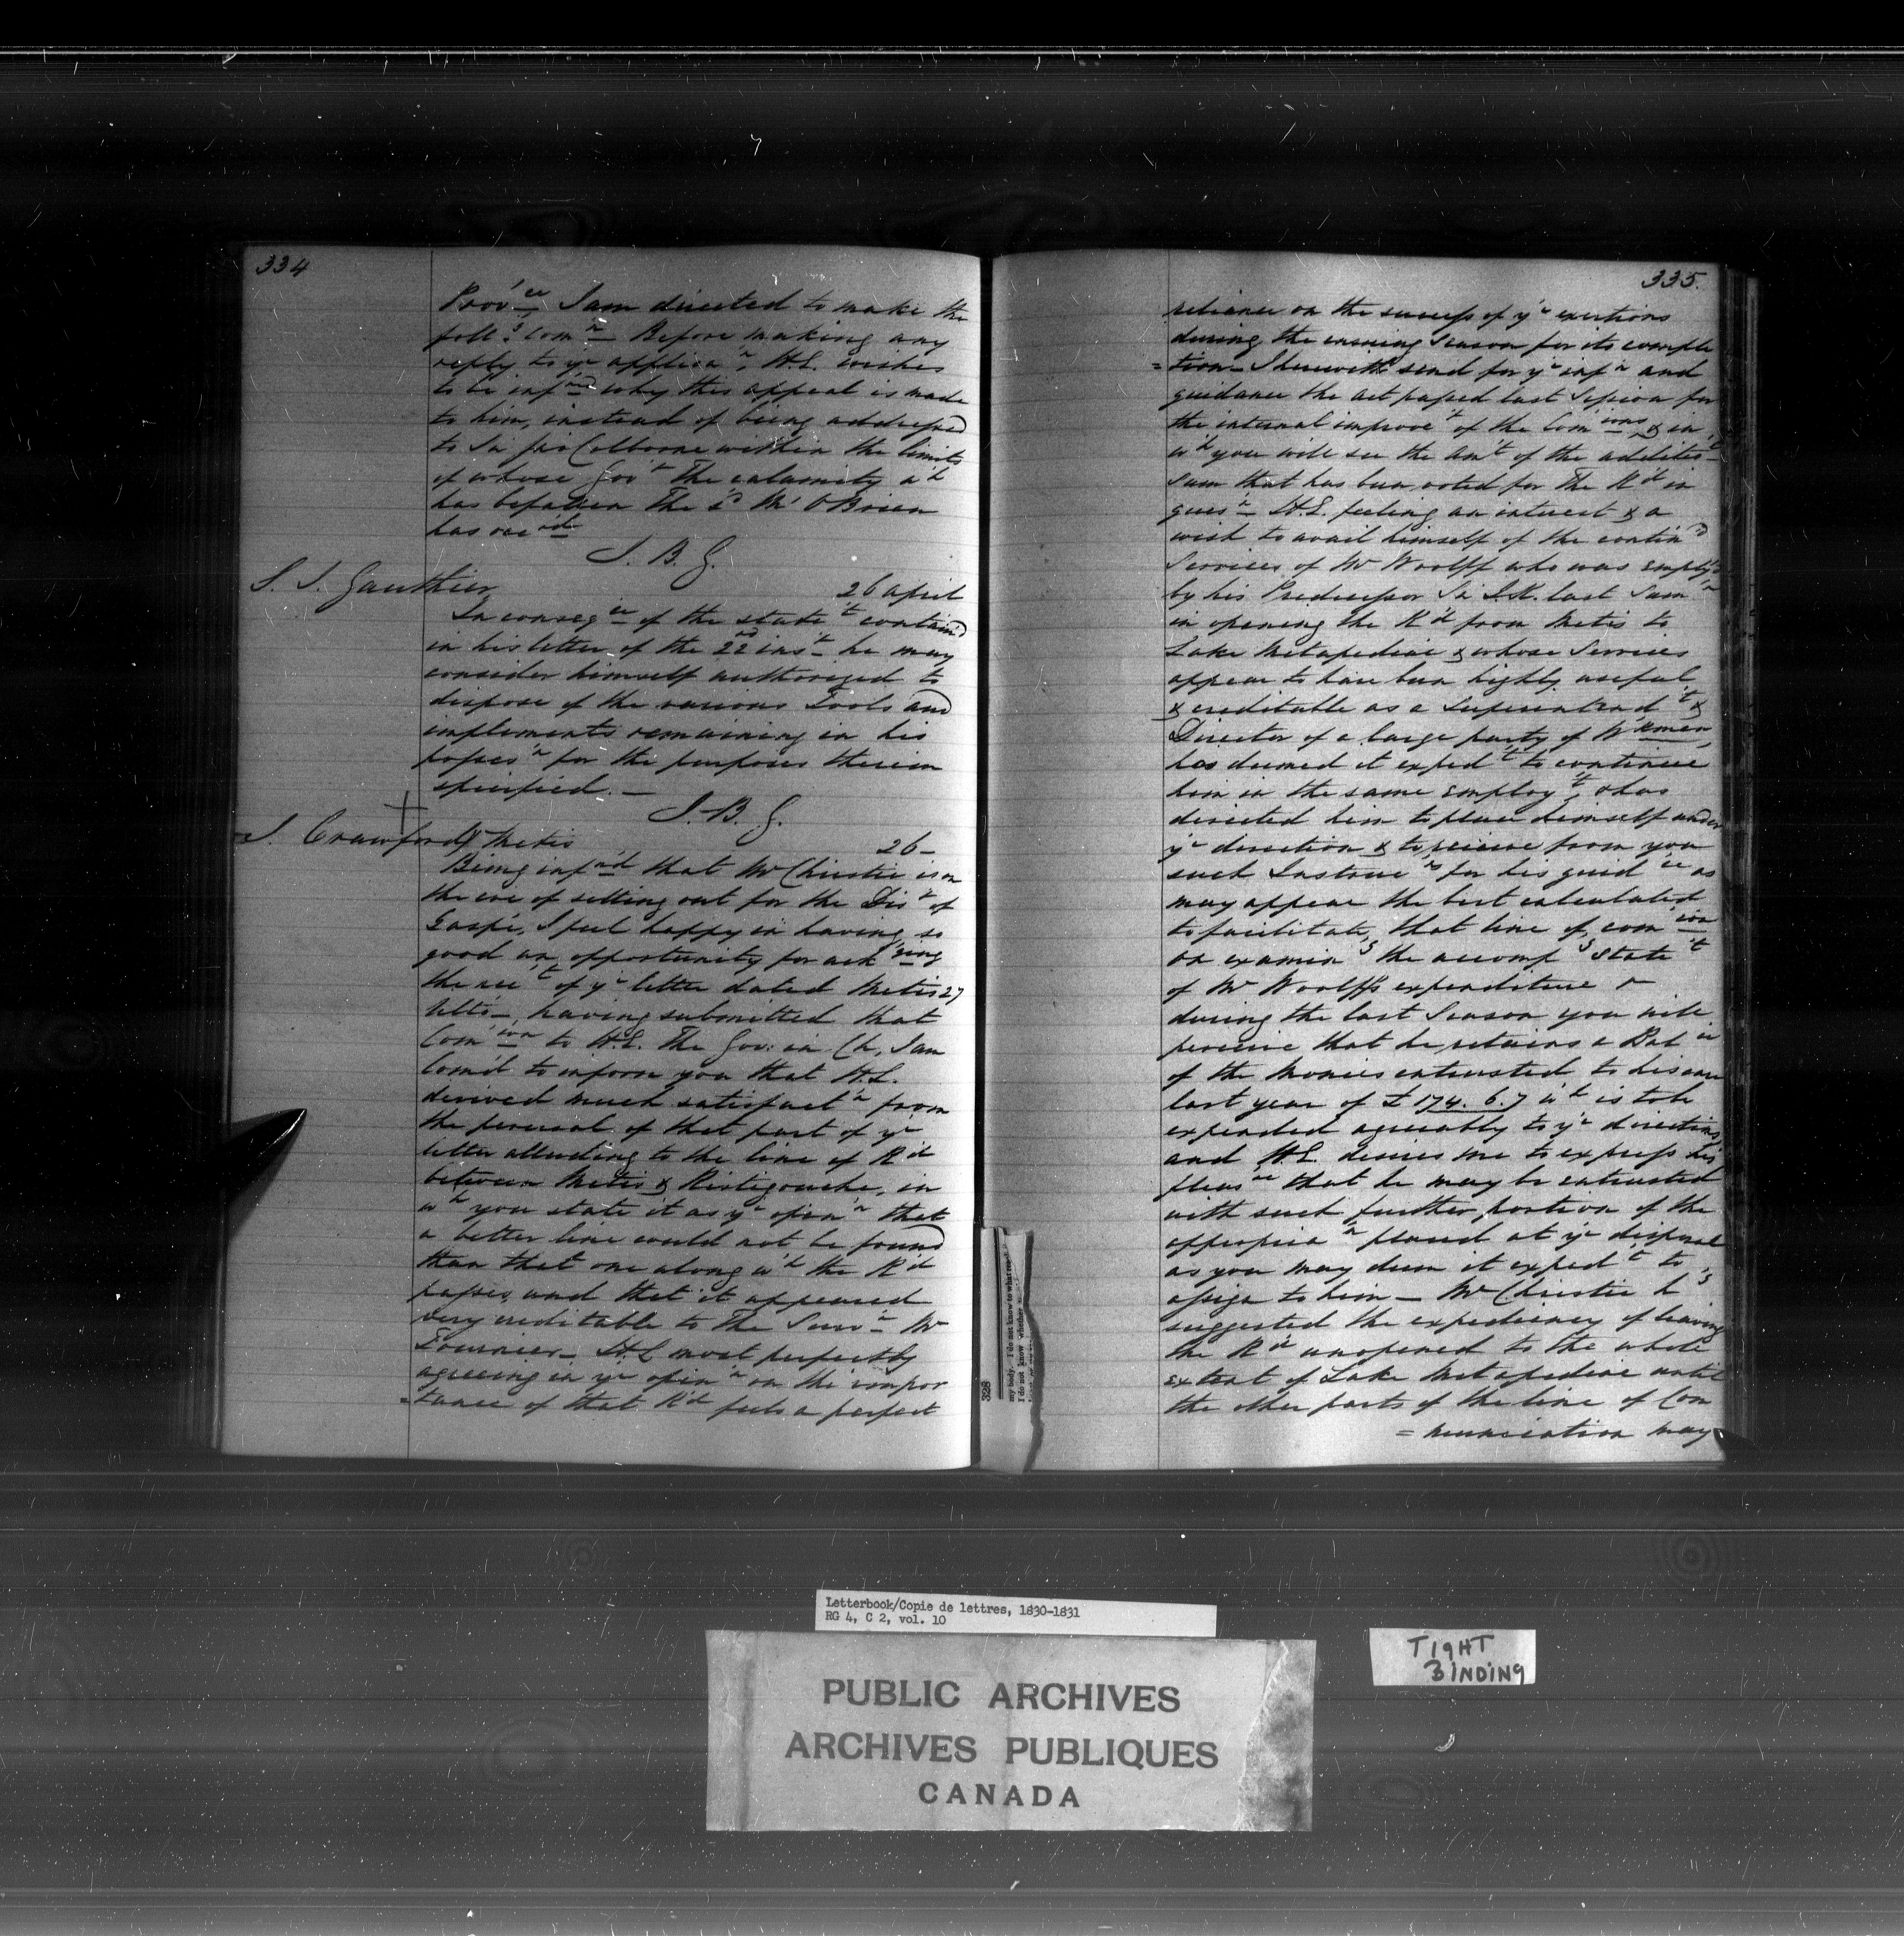 334
Prov'ce I am directed to make the
foll'g com'n – Before making any
reply to y'r applica'n, H.E. wishes
to be inf'med why this appeal is made
to him, instead of being addressed
to Sir Jno Colborne within the limits
of whose Gov't the calamity w'h
has befallen the s'd Mr O'Brien
has occ'd
J. B. G.
26 april
In conseq'ce of the state't contain'd
in his letter of the 22nd ins't he may
consider himself authorized to
dispose of the various Tools and
implements remaining in his
posses'n for the purposes therein
specified. –
J. B. G.
Gauthier
J. Crawford Metis
26 –
Being inf'm'd that Mr Christie is on
the eve of setting out for the Dis't of
Gaspé, I feel happy in having so
good an opportunity for ack'ging
the rec't of y'r letter dated Metis 27
Ulto – having submitted that
Com'ion to H.E. The Gov: in Ch, I am
Com'd to inform you that H.E.
derived much satisfact'n from
the perusal of that part of y'r
letter alluding to the line of R'd
between Metis & Ristigouche, in
w'h you state it as y'r opin'n that
a better line could not be found
than that one along w'h the R'd
passes, and that it appeared
very creditable to the Surv'r Mr
Fournier – H.E. most perfectly
agreeing in y'r opin'n on the impor
=tance of that R'd feels a perfect
335.
reliance on the success of y'r exertions
during the ensuing Season for its comple
=tion – I herewith send for y'r inf'n and
guidance the act passed last Session for
the internal improve't of the Com'ions & in
w'h you will see the Am't of the addit
sum that has been voted for the R'd in
ques'n H.E. feeling an interest & a
wish to avail himself of the contin'd
Services of Mr Woolff who was employ'd
by his Predecessor Sir J.K. last Sum'r
in opening the R'd from Metis to
Lake Metapediac & whose Services
appear to have been highly useful
& creditable as a Superintend't &
Director of a large party of W'kmen,
has deemed it exped't to continue
him in the same employ't, & has
directed him to place himself under
y'r direction & to receive from you
such Instruc'ns for his guid'ce as
may appear the best calculated
to facilitate that line of com'ion
on examin'g the accomp'g State't
of Mr Woolff's expenditure
during the last Season you will
perceive that he retains a Bal'ce
of the Monies entrusted to his care
last year of £174. 6. 7 w'h is to be
expended agreeably to y'r directions,
and H.E. desires me to express his
pleas're that he may be entrusted
with such further portion of the
appropria'n placed at y'r disposal
as you may deem it exped't to
assign to him – Mr Christie h's
suggested the expediency of leaving
the R'd unopened to the whole
extent of Lake Metapediac until
the other parts of the line of Com
=munication may
328
my body. I do not know to what
I do not know whether
Letterbook/Copie de lettres, 1830-1831
RG 4, C 2, vol. 10
PUBLIC ARCHIVES
ARCHIVES PUBLIQUES
CANADA
TIGHT
BINDING